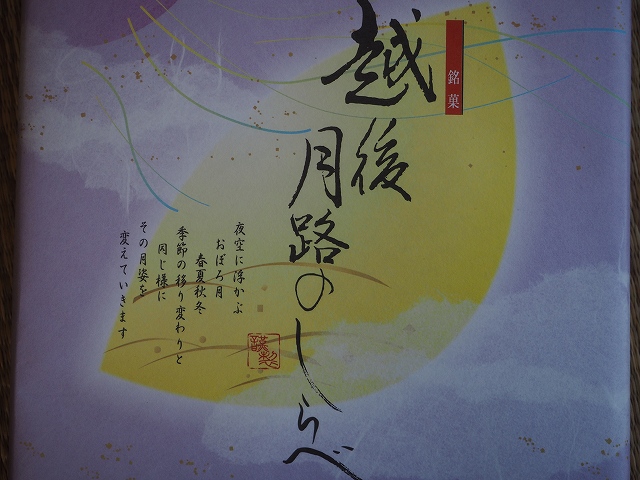 銘菓
越後
月路のしらべ
夜空に浮かぶ
おぼろ月
春夏秋冬
季節の移り変わりと
同じ様に
その月姿を
変えていきます
謹製